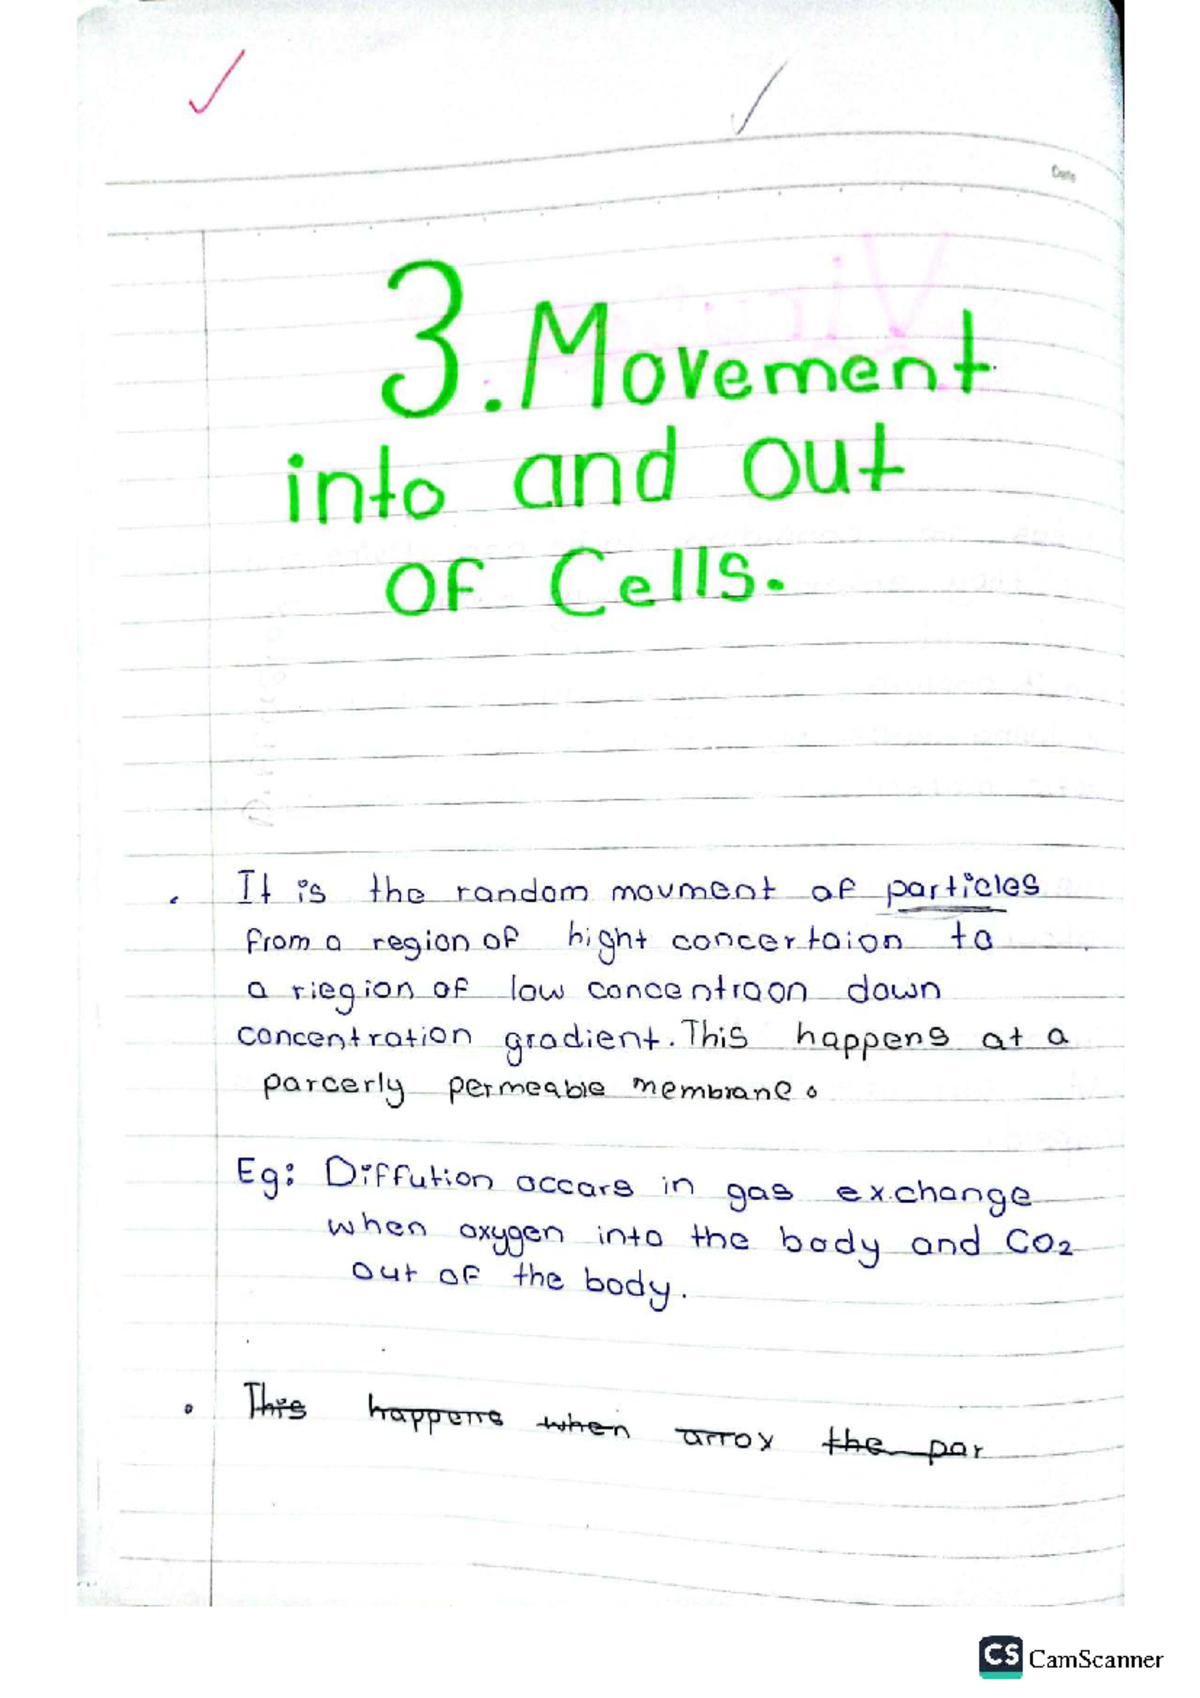 Date
3. Movement
into and out
of Cells.
It is the random movment of particles
from a region of hight concertaion to
a riegion of low concentraon down
concentration gradient. This happens at a
parcerly permeable membrane.
Eg: Diffution occars in gas exchange
when oxygen into the body and CO2
out of the body.
This happens when arrox the par
CS CamScanner